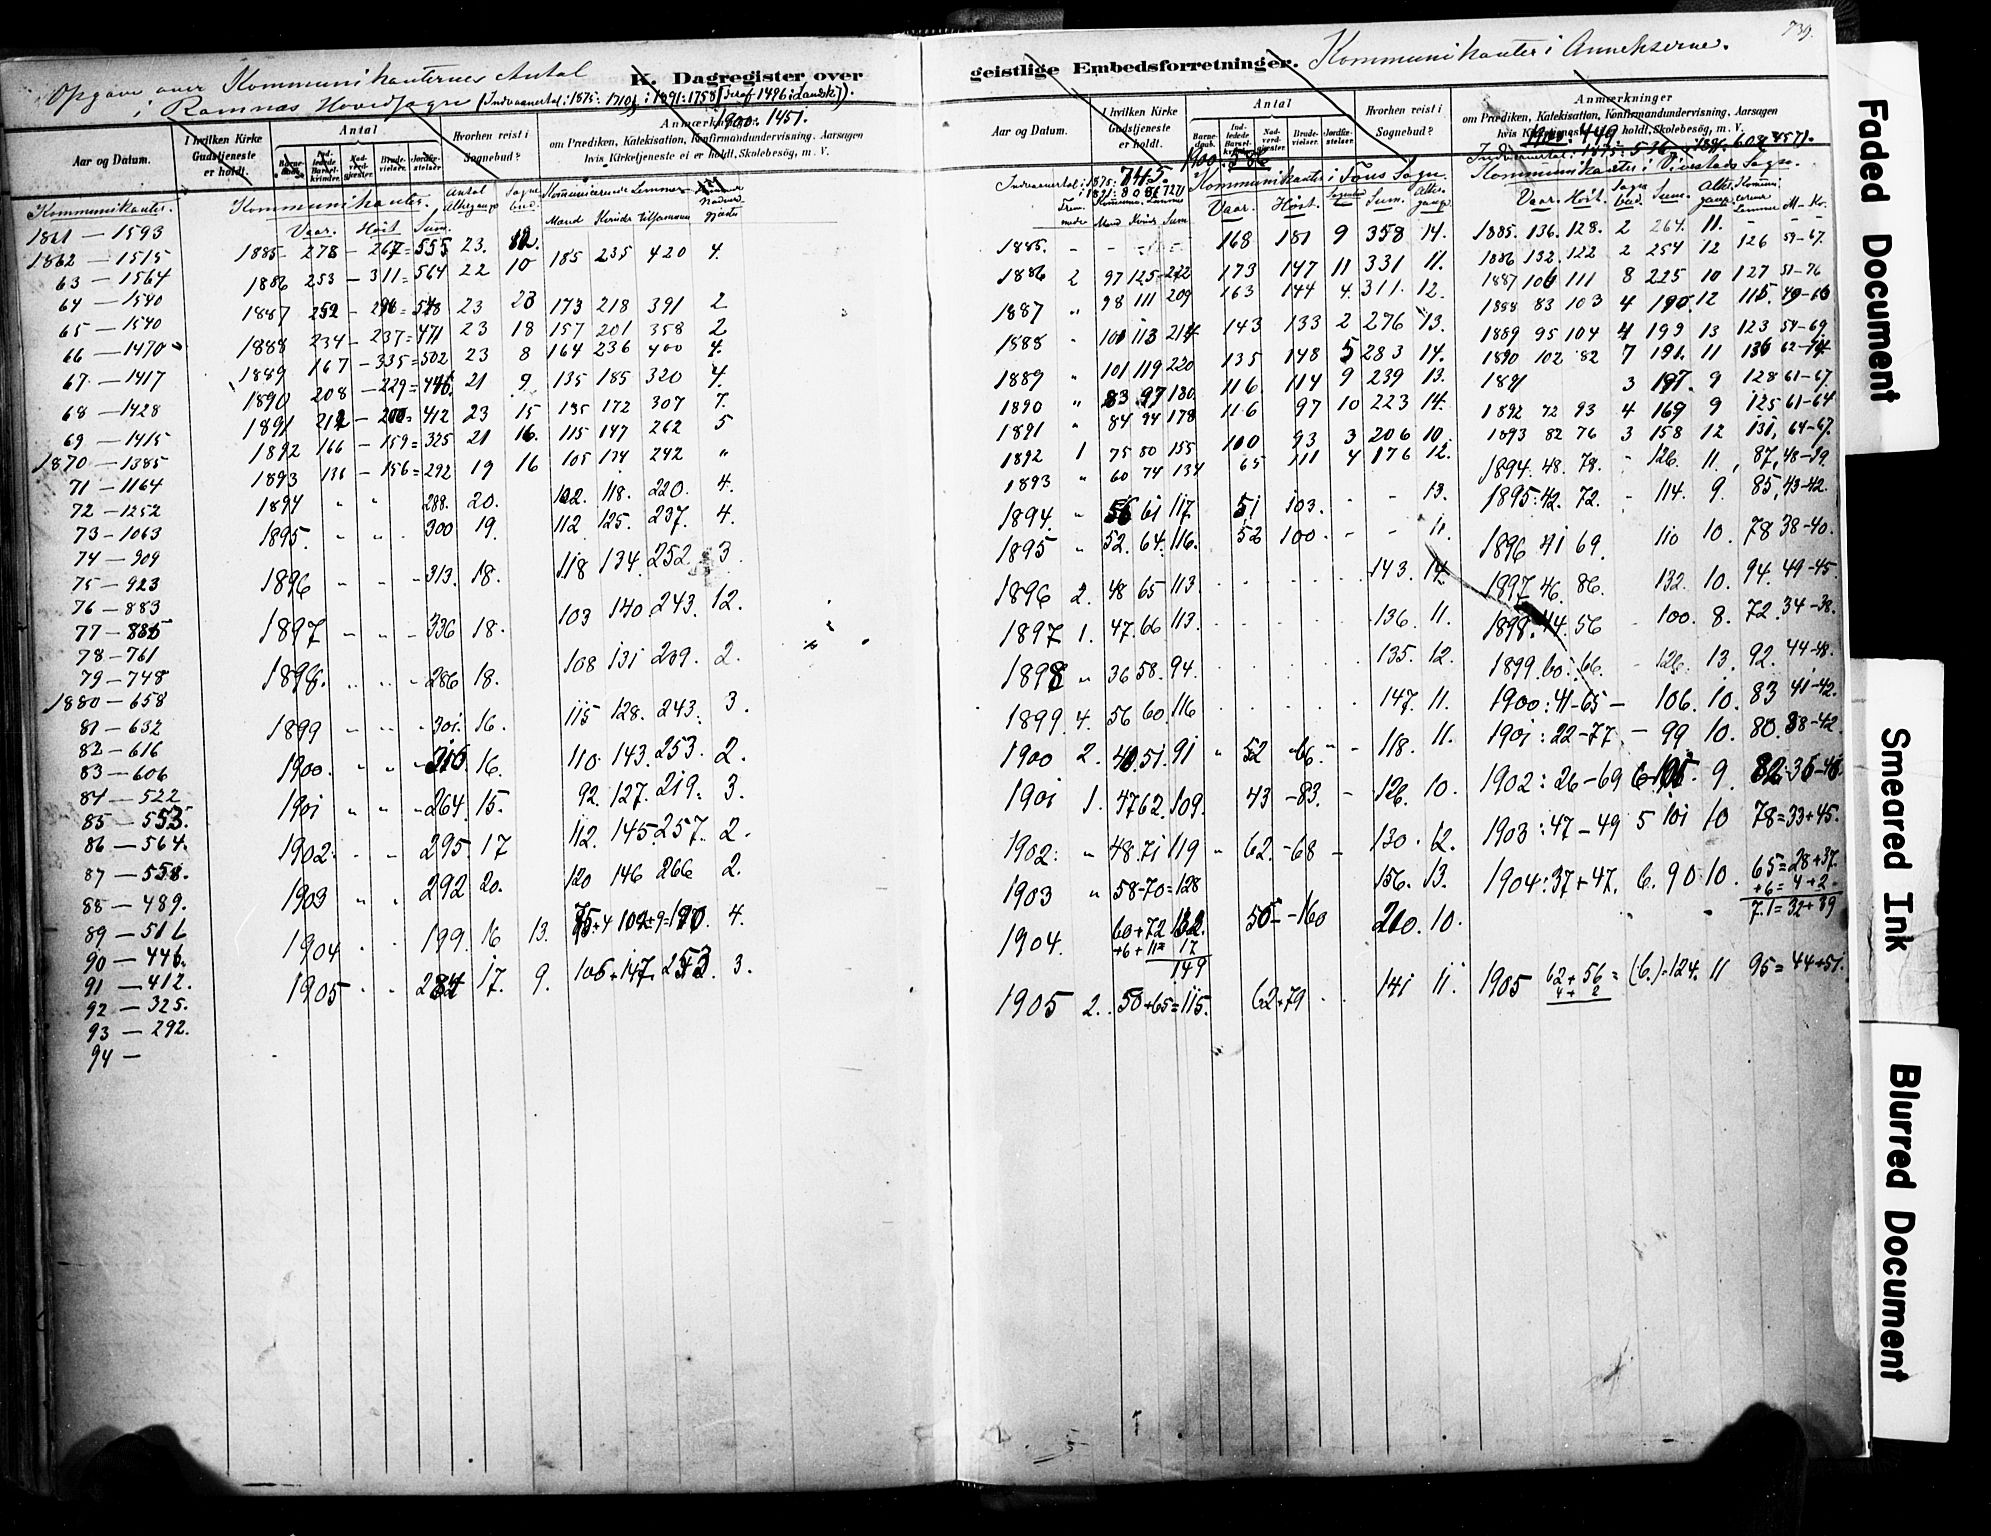 739.
Opgave over Kommunikanternes Antal
i Ramnæs Hovedsogn (Indvaanertal: 1875: 1710; i 1891: 1758 (deraf 1496 i Landsk)).
1900: 1451.
K. Dagregister over
Aar og Datum.
I hvilken Kirke Gudstjeneste er holdt.
Antal
Barnedaab.
Indledede Barselkvinder.
Nadverdgjæster
Brudevielser.
Jordfæstelser
Hvorhen reist i Sognebud?
Anmærkninger
om Prædiken, Katekisation, Konfirmandundervisning, Aarsagen
hvis Kirketjeneste ei er holdt, Skolebesög, m. V.
Kommunikanter. Kommunikanter. Antal Altergange Sognebud. Kommunicerende Lemmer
Vaar. Höst. Sum. Mænd Kvinder Tilsammen
1861 — 1593
1862 — 1515
63 — 1564
64 — 1540
65 — 1540
66 — 1470
67 — 1417
68 — 1428
69 — 1415
1870 — 1385
71 — 1164
72 — 1252
73 — 1063
74 — 909
75 — 923
76 — 883
77 — 885
78 — 761
79 — 748
1880 — 658
81 — 632
82 — 616
83 — 606
84 — 522
85 — 553.
86 — 564.
87 — 538.
88 — 489.
89 — 511
90 — 446.
91 — 412.
92 — 325.
93 — 292.
94 —
1885 278 — 267 = 555 23. 12. 185 235 420 4.
1886 253 — 311 = 564 22 10
1887 252 — 296 = 548 23 23 173 218 391 2
1888 234 — 237 = 471 23 18 157 201 358 2
1889 167 — 335 = 502 23 8 164 236 400 4.
1890 208 — 229 = 446. 21 9. 135 185 320 4.
1891 212 — 200 = 412 23 15 135 172 307 7.
1892 166 — 159 = 325 21 16. 115 147 262 5
1893 136 — 156 = 292 19 16 105 134 242 "
1894 " " 288. 20. 102. 118. 220. 4.
1895. " " 300 19. 112 125. 237. 4.
1896 " " - 313. 18. 118 134 252 3
1897 - - - 336 18. 103 140 243. 12.
1898. - 286 18. 108 131 239. 2.
1899 - 301. 16. 115 128. 243. 3.
1900. " " - 316. 16. 110. 143. 253. 2.
1901 " " - 264. 15. 92. 127. 219. 3.
1902: 295. 17 112. 145. 257. 2.
1903 " " 292 20. 120 146 266 2.
1904 199. 16 13. 4.
1905 284 17. 9. 106 + 147. 253. 3.
geistlige Embedsforretninger. Kommunikanter i Annekserne.
Aar og Datum.
I hvilken Kirke Gudstjeneste er holdt.
Antal
Barnedaab.
Indledede Barselkvinder.
Nadverdgjæster
Brudevielser.
Jordfæstelser.
Hvorhen reist i Sognebud?
Anmærkninger
om Prædiken, Katekisation, Konfirmandundervisning, Aarsagen
hvis Kirketjeneste ei er holdt, Skolebesög, m. V.
1900: 586
Indvaanertal: 1875: 745.
Kommunikanter i Fons Sogn.
Fremmede Mænd Kvind Sum Vaar. Höst. Sognebud Sum. Altergang
1885. - - 168 181 9 358 14.
1886 2 97 125 222 173 147 11 331 11.
1887 " 98 111 209 163 144 4. 311. 12.
1888 " 101 113 214 143 133 2 276 13.
1889 " 101 119 220 135 148 5 283 14.
1890 " 83 97 180 116. 114 9 239 13.
1891 " 84 94 178 116 97 10 223 14.
1892 1 75 80 155 100 93 3 206 10.
1893 " 60 74 134 65 111 4 176 12.
1894. " 56 61 117 51 103. - - 13.
1895 " 52. 64. 116. 52 100. - - 11.
1896 2. 48 65 113. 143. 14.
1897 1. 47. 66 113. 136. 11.
1898 " 36 58. 94. 135. 12.
1899. 4. 56 60 116 147. 11.
1900 2. 40. 51. 91 " 52 - 66. - - 118. 11.
1901 1. 47 62. 109. 43 - 83. - 126. 10.
1902: " 48. 71 119 " 62. - 68 - 130. 12.
1903 " 58 - 70 = 128 156. 13.
1904. 60 + 72 132. 50 - 160 210. 10.
+6 + 11 = 17
149
1905 2. 50 + 65 = 115. 62 + 79 141 11.
1900: 449
Indvaanertal: 1875: 576
Kommunikanter i Vivestad Sogn.
Vaar. Höst. Sognebud. Sum. Altergang Kommunicerende Lemmer M — Kv.
1885. 136. 128. 2 264. 11.
1886 132. 122 2 254 12 126 59 - 67.
1887 106 111 8 225 10 127 51 - 76
1888 83 103 4 190. 12 115. 49 - 66
1889 95 104 4 199 13 123 54 - 69.
1890 102 82 7 191. 11 136 62 - 74.
1891 3 197. 9 128 61 - 67.
1892 72 93 4 169 9 125 61 - 64
1893 82 76 3 158 12 131, 64 - 67.
1894. 48. 78. - 126. 11, 87, 48 - 39.
1895: 42. 72. - 114. 9. 85, 43 - 42.
1896 41 69. 110 10. 78 38 - 40.
1897 46. 86. 132. 10. 94. 49 - 45.
1898. 44. 56 - 100. 8. 72. 34 - 38.
1899. 60. 66. - 126. 13. 92. 44 - 48.
1900: 41 - 65 - 106. 10. 83 41 - 42.
1901: 22 - 77. - 99 10. 80. 38 - 42.
1902: 26 - 69 6. 9. 82
1903: 47 - 49 5 101 10 78 = 33 + 45.
1904: 37 + 47. 6. 90 10. 65 = 28 + 37.
+6 = 4 + 2
71 = 32 + 39
1905 62 + 56 = (6.) - 124. 11 95 = 44 + 51.
4 + 2
Faded Document
Smeared Ink
Blurred Document